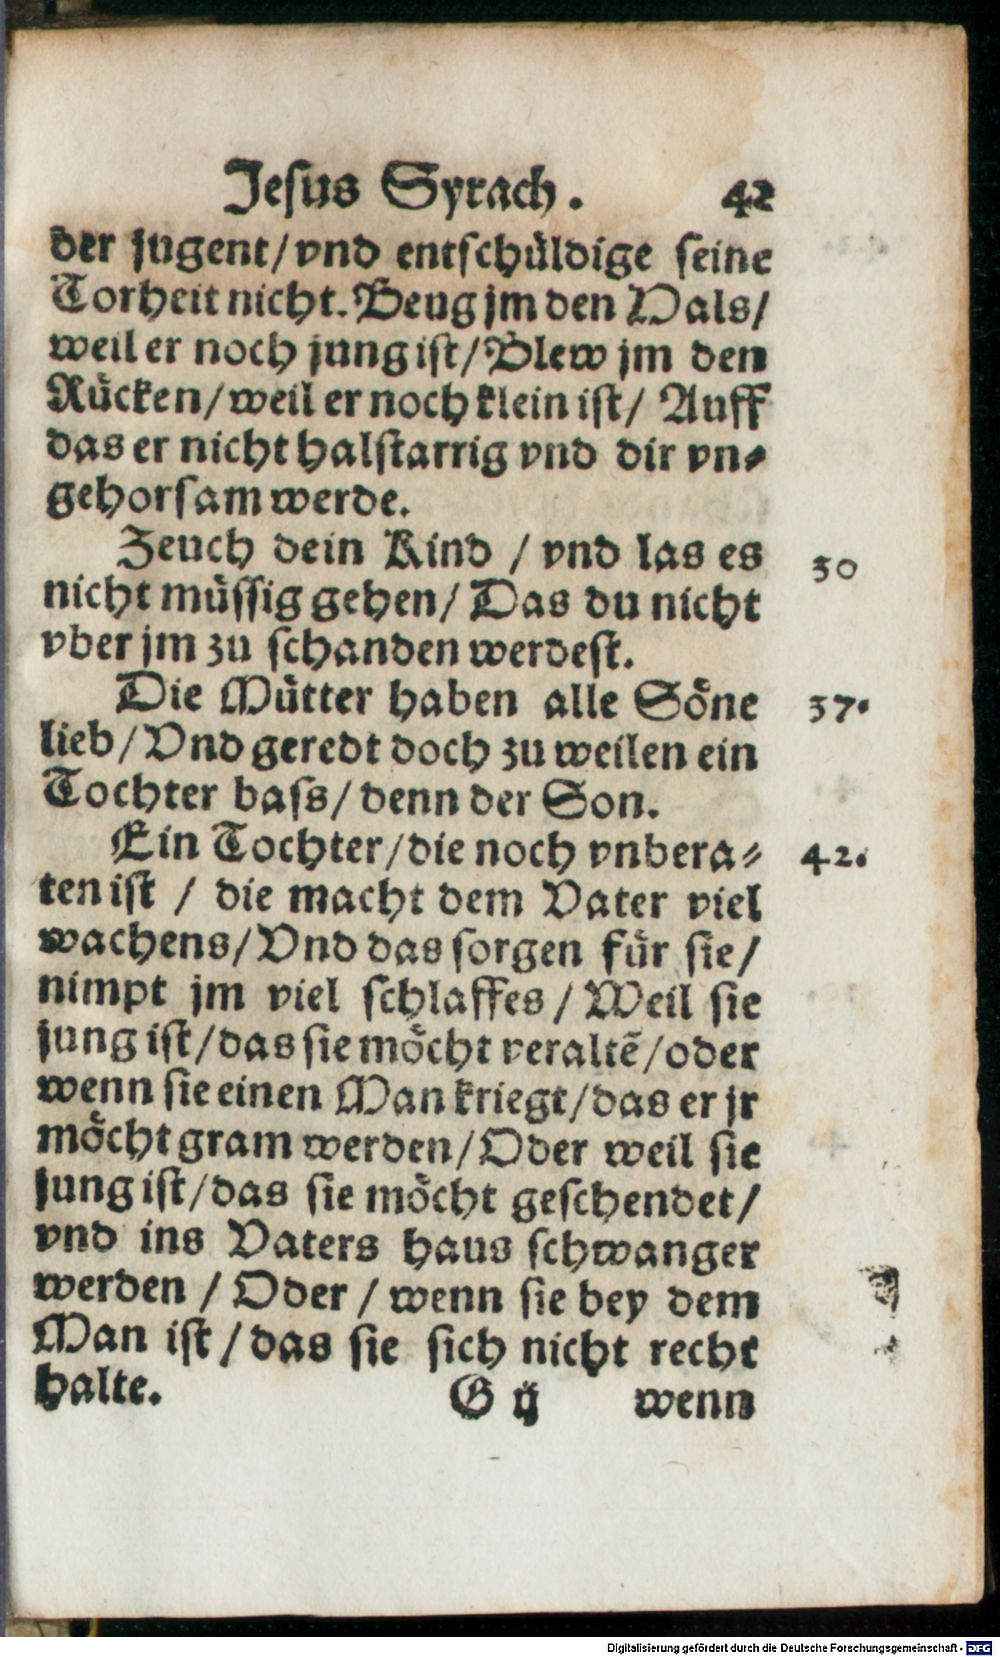 Jesus Syrach. 42
der jugent/vnd entschüldige seine
Torheit nicht. Beug jm den Hals/
weil er noch jung ist/Blew jm den
Rücken/weil er noch klein ist/ Auff
das er nicht halstarrig vnd dir vn⸗
gehorsam werde.
Zeuch dein Kind / vnd las es 30
nicht müssig gehen/ Das du nicht
vber jm zu schanden werdest.
Die Mütter haben alle Söne 37.
lieb/Vnd geredt doch zu weilen ein
Tochter bass/denn der Son.
Ein Tochter/die noch vnbera⸗ 42.
ten ist / die macht dem Vater viel
wachens/Vnd das sorgen für sie/
nimpt jm viel schlaffes/Weil sie
jung ist/das sie möcht veraltẽ/oder
wenn sie einen Man kriegt/das er jr
möcht gram werden/Oder weil sie
jung ist/das sie möcht geschendet/
vnd ins Vaters haus schwanger
werden / Oder / wenn sie bey dem
Man ist/das sie sich nicht recht
halte. G ij wenn
Digitalisierung gefördert durch die Deutsche Forschungsgemeinschaft - DFG